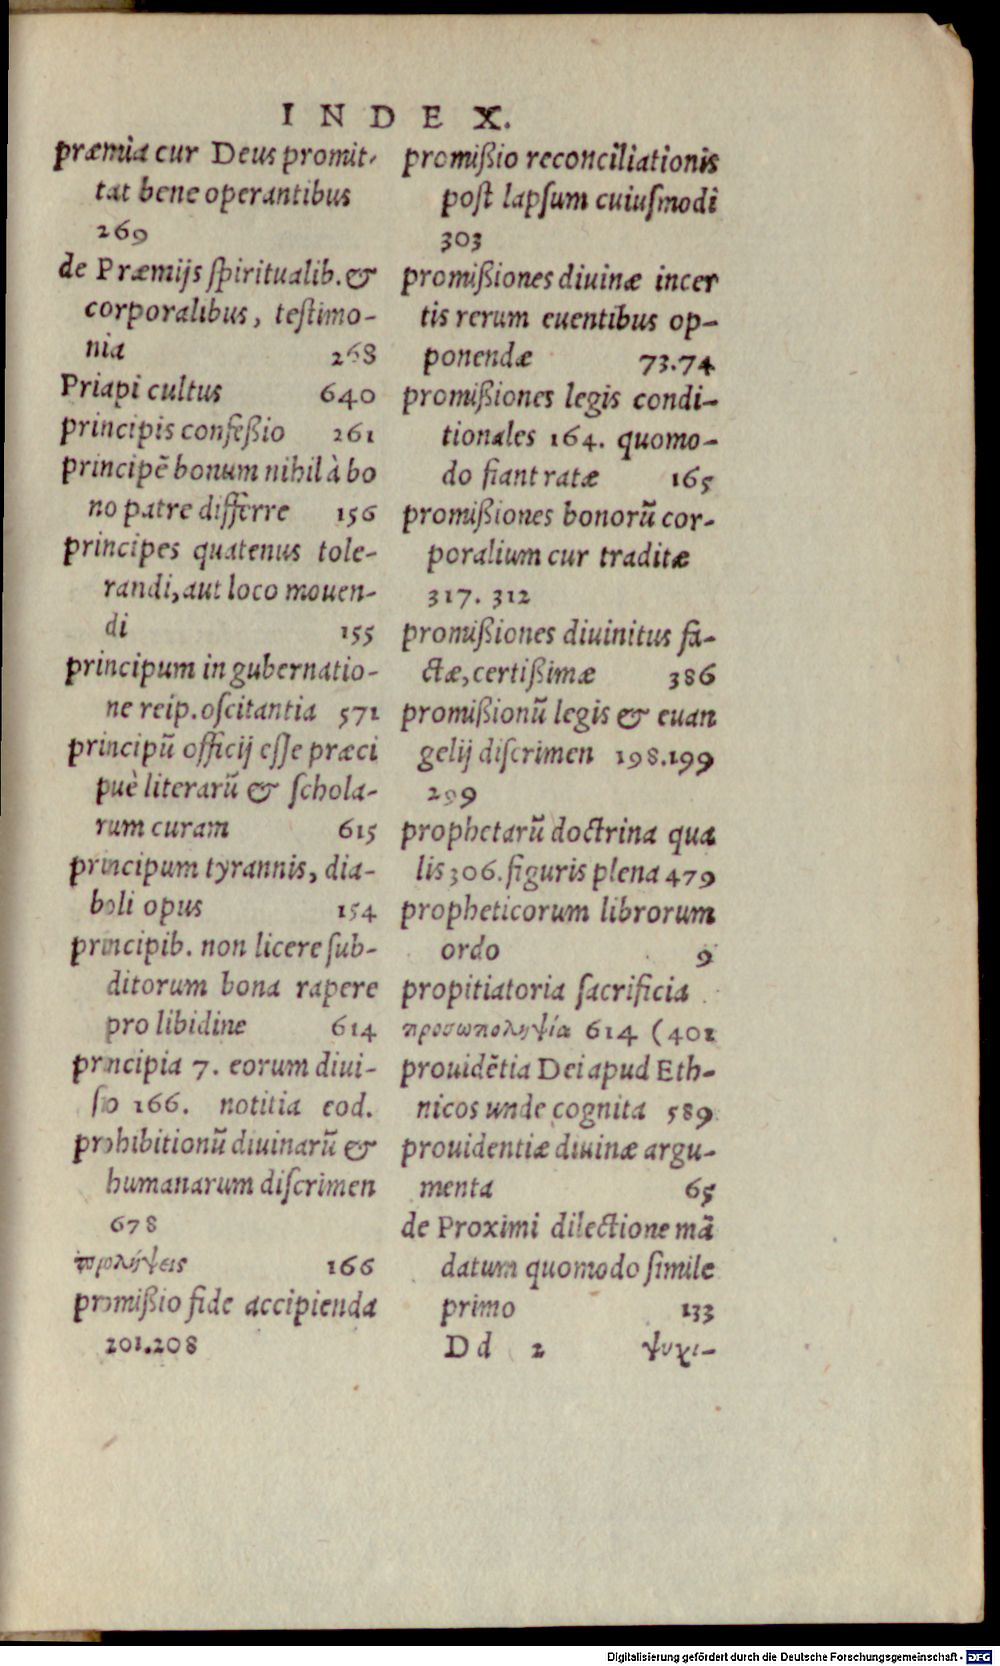 INDEX.
præmia cur Deus promit-
tat bene operantibus
269
de Præmijs spiritualib. &
corporalibus, testimo-
nia 268
Priapi cultus 640
principis confeßio 261
principē bonum nihil à bo
no patre differre 156
principes quatenus tole-
randi, aut loco mouen-
di 155
principum in gubernatio-
ne reip. oscitantia 571
principū officij esse præci
puè literarū & schola-
rum curam 615
principum tyrannis, dia-
boli opus 154
principib. non licere sub-
ditorum bona rapere
pro libidine 614
principia 7. eorum diui-
sio 166. notitia eod.
prohibitionū diuinarū &
humanarum discrimen
678
προλήψεις 166
promißio fide accipienda
201.208
promißio reconciliationis
post lapsum cuiusmodi
303
promißiones diuinæ incer
tis rerum euentibus op-
ponendæ 73.74
promißiones legis condi-
tionales 164. quomo-
do fiant ratæ 165
promißiones bonorū cor-
poralium cur traditæ
317. 312
promißiones diuinitus fa-
ctæ, certißimæ 386
promißionū legis & euan
gelij discrimen 198.199
299
prophetarū doctrina qua
lis 306. figuris plena 479
propheticorum librorum
ordo 9
propitiatoria sacrificia
προσωποληψία 614 (401
prouidētia Dei apud Eth-
nicos unde cognita 589
prouidentiæ diuinæ argu-
menta 65
de Proximi dilectione mā
datum quomodo simile
primo 133
Dd 2 ψυχι-
Digitalisierung gefördert durch die Deutsche Forschungsgemeinschaft - DFG